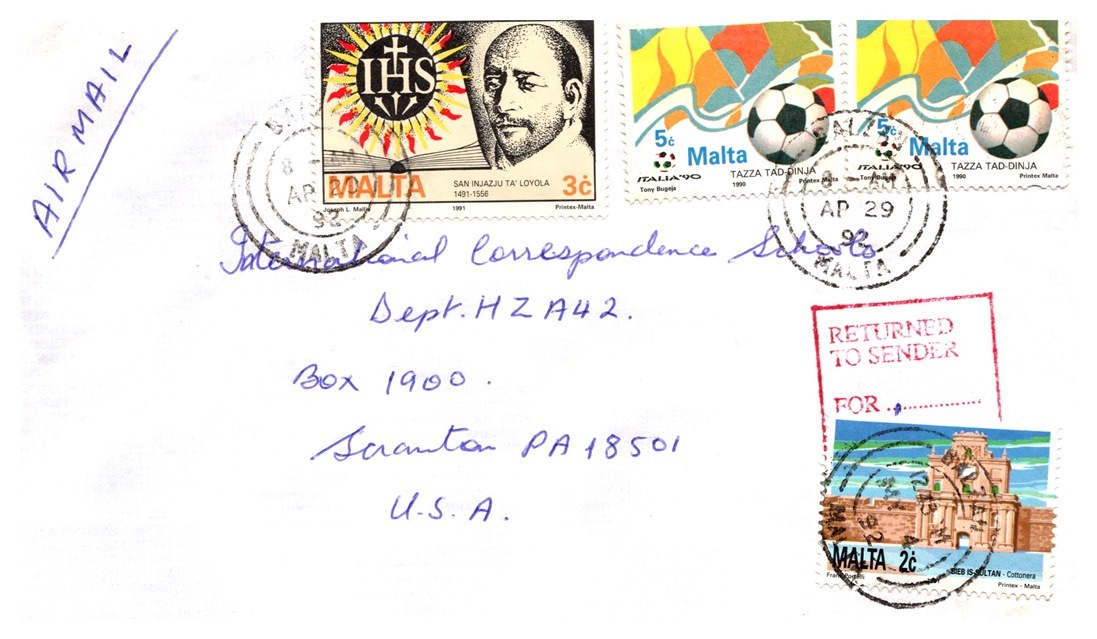 AIR MAIL
IHS
MALTA
SAN INJAZJU TA' LOYOLA
1491-1556
3ċ
Joseph L. Mallia 1991 Printex-Malta
5ċ
Malta
ITALIA'90
TAZZA TAD-DINJA
Tony Bugeja 1990 Printex Malta
5ċ
Malta
ITALIA'90
TAZZA TAD-DINJA
Tony Bugeja 1990 Printex Malta
AP 29
92
MALTA
AP 29
92
MALTA
International Correspondence Schools
Dept. HZA42.
Box 1900.
Scranton PA 18501
U.S.A.
RETURNED
TO SENDER
FOR ..................
MALTA 2ċ
BIEB IS-SULTAN - Cottonera
Frank Portelli Printex - Malta